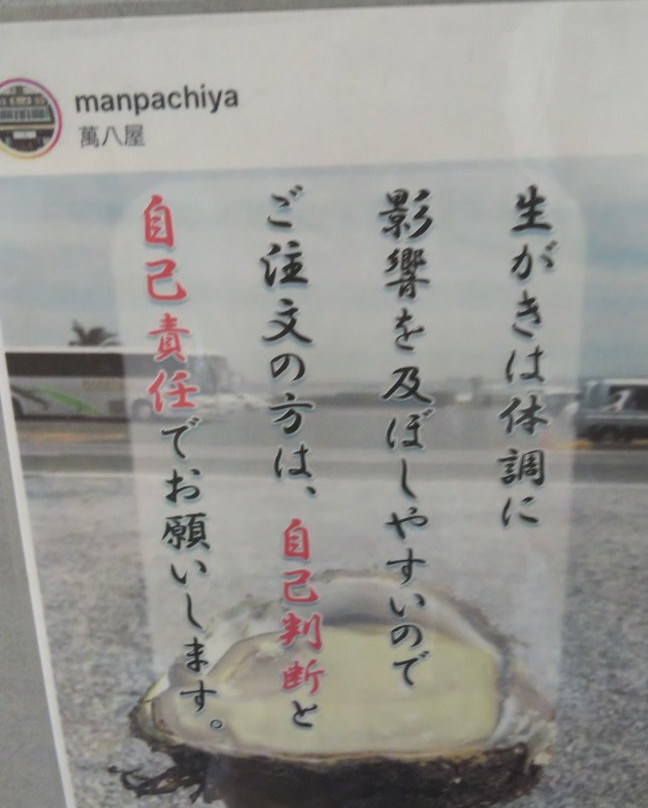 manpachiya
萬八屋
生がきは体調に
影響を及ぼしやすいので
ご注文の方は、自己判断と
自己責任でお願いします。